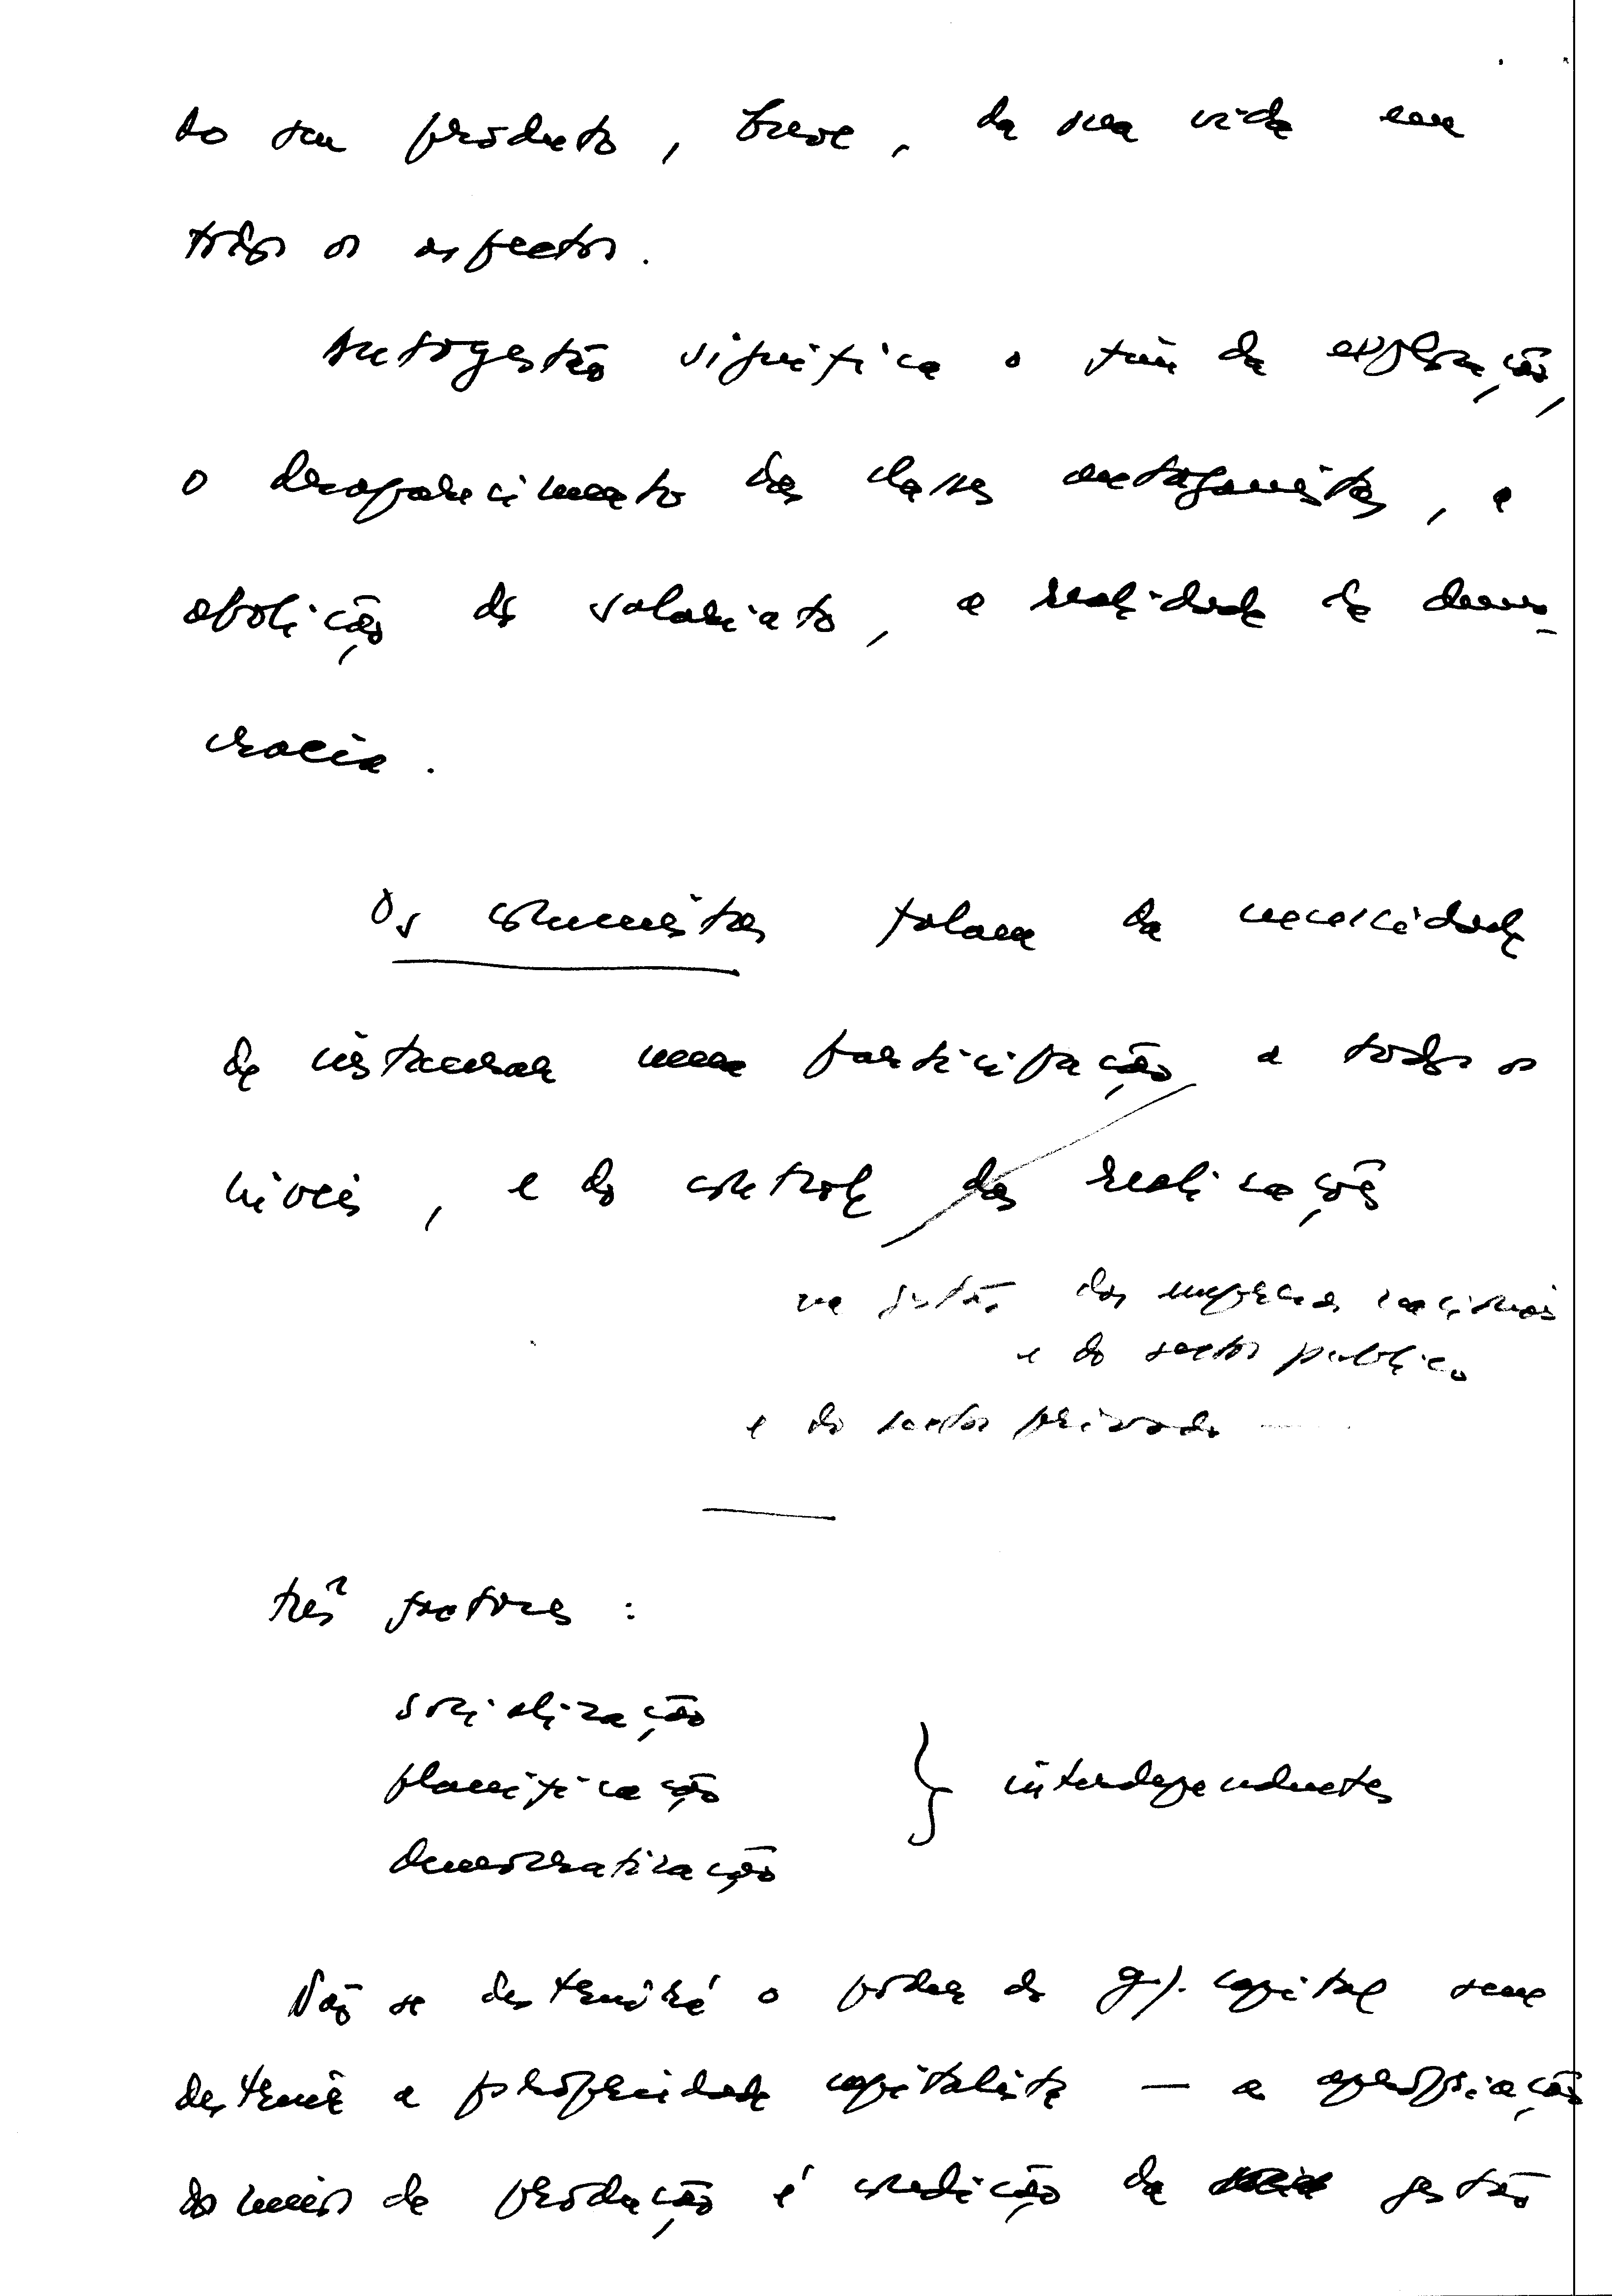 do seu produto, breve, da sua vida em
todos os aspectos.
Autogestão significa o fim da exploração,
o desaparecimento das classes antagonistas, a
abolição do salariato, a realidade da demo-
cracia.
Os comunistas falam da necessidade
de instaurar uma participação a todos os
níveis, e do controle das realizações
na gestão das empresas nacionais
e do sector público
e do sector privado —
três factores :
socialização
planificação
democratização
} interdependentes
Não se destruirá o poder do gr. capital sem
destruir a propriedade capitalista — a apropriação
dos meios de produção é condição da gestão